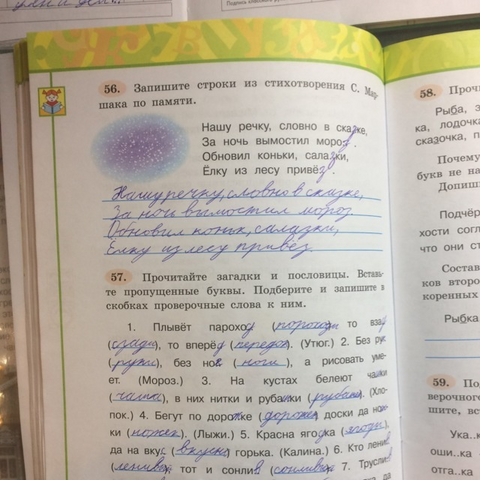 56. Запишите строки из стихотворения С. Мар-
шака по памяти.
Нашу речку, словно в сказке,
За ночь вымостил мороз.
Обновил коньки, салазки,
Ёлку из лесу привёз.
Нашу речку, словно в сказке,
За ночь вымостил мороз.
Обновил коньк, салазки,
Елку из лесу привёз.
57. Прочитайте загадки и пословицы. Вставь-
те пропущенные буквы. Подберите и запишите в
скобках проверочные слова к ним.
1. Плывёт пароход (пороходы) то взад
(сзади), то вперёд (передок). (Утюг.) 2. Без рук
(руки), без ног (ноги), а рисовать уме-
ет. (Мороз.) 3. На кустах белеют чашки
(чашка), в них нитки и рубашки (рубаха). (Хло-
пок.) 4. Бегут по дорожке (дорожек) доски да нож-
ки (ножек). (Лыжи.) 5. Красна ягодка (ягоды),
да на вкус (вкусны) горька. (Калина.) 6. Кто ленив
(ленивы), тот и сонлив (сонливы). 7. Труслив
58. Проч
Рыба, з
ка, лодочка
сказочка, п
Почему
букв не на
Допиши
Подчёр
хости согл
что они ст
Состав
ков второ
коренных
Рыбка
59. По
верочного
шите, вст
Ука..к
оши..ка
отга..ка